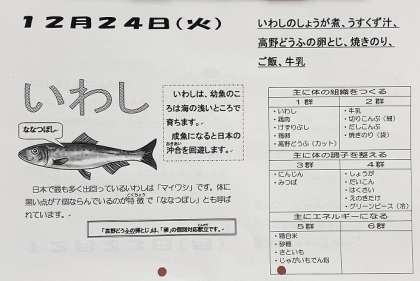 12月24日(火)
いわしのしょうが煮、うすくず汁、
高野どうふの卵とじ、焼きのり、
ご飯、牛乳
いわし
ななつぼし
いわしは、幼魚のこ
ろは海の浅いところで
育ちます。
成魚になると日本の
沖合を回遊します。
日本で最も多く出回っているいわしは「マイワシ」です。体
に黒い点が7個ならんでいるのが特徴で「ななつぼし」とも呼ば
れています。
「高野どうふの卵とじ」は、「卵」の個別対応献立です。
主に体の組織をつくる
1群
2群
・いわし
・鶏肉
・けずりぶし
・鶏卵
・高野どうふ(カット)
・牛乳
・切りこんぶ(細)
・だしこんぶ
・焼きのり
主に体の調子を整える
3群
4群
・にんじん
・みつば
・しょうが
・だいこん
・はくさい
・えのきたけ
・グリーンピース(冷)
主にエネルギーになる
5群
6群
・精白米
・砂糖
・さといも
・じゃがいもでん粉